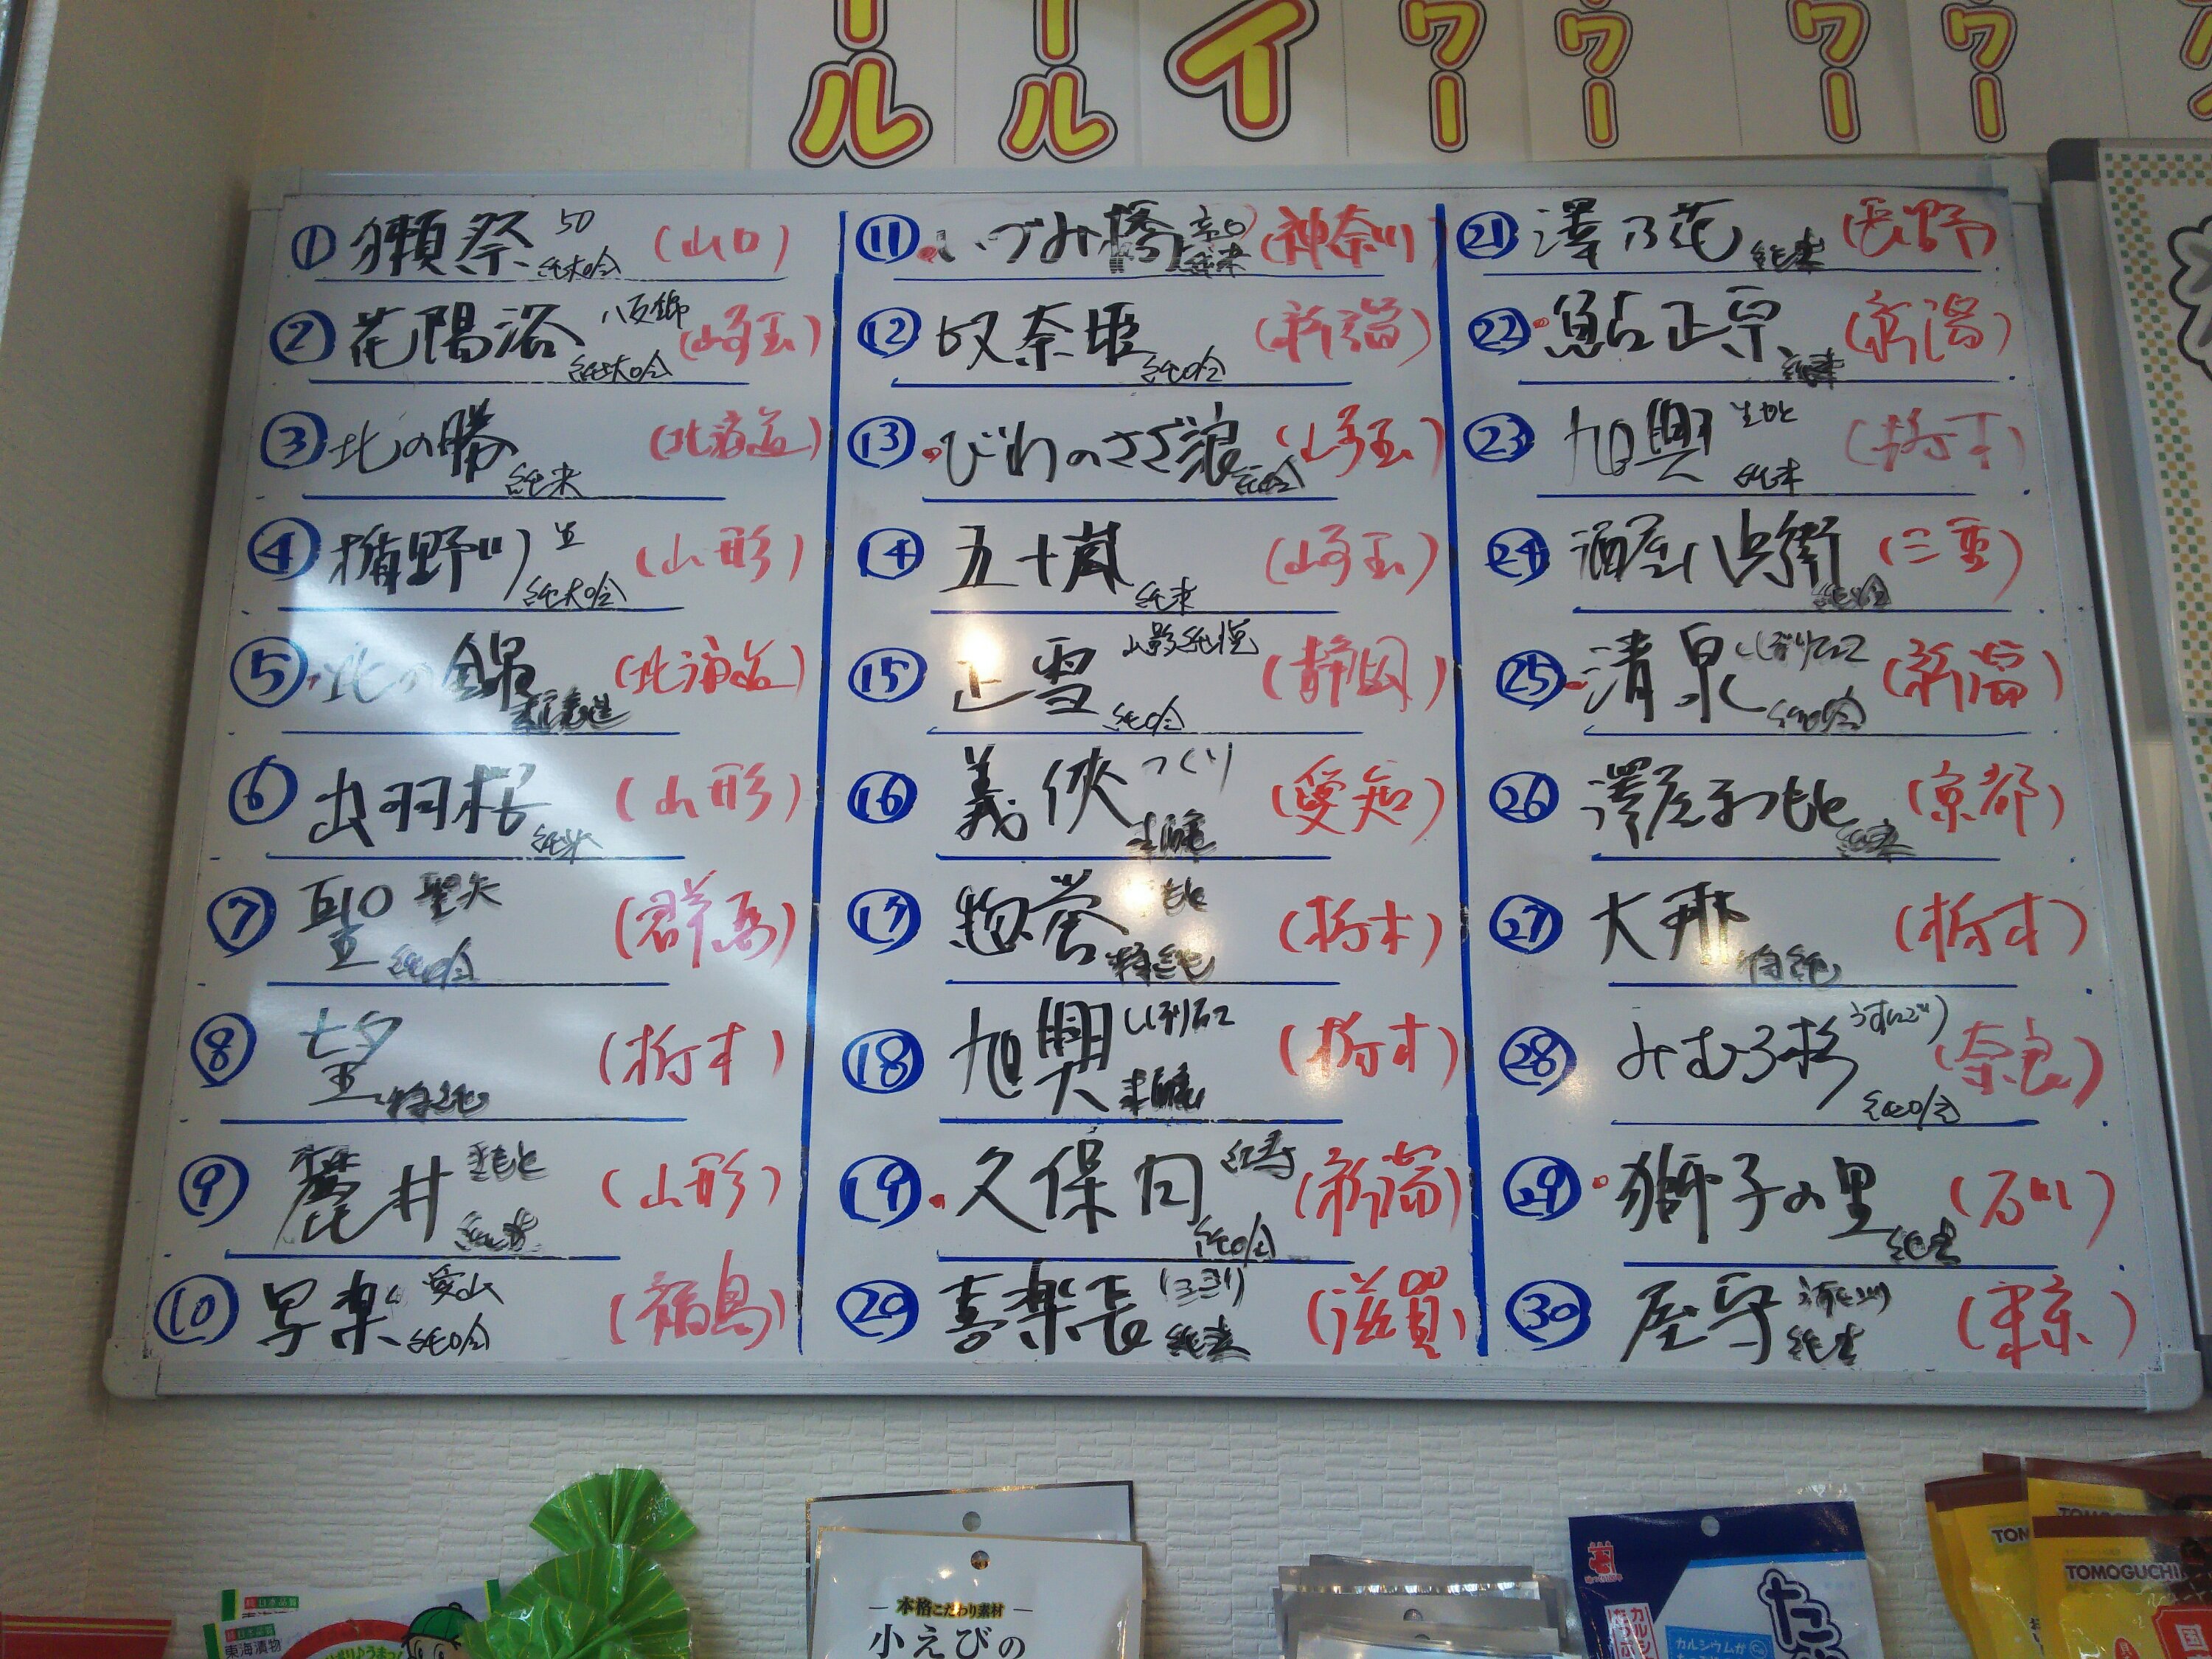 ール
ール
イ
ワー
ワー
ワー
ワー
① 獺祭 50 純大吟 (山口)
② 花陽浴 八反錦 純大吟 (埼玉)
③ 北の勝 純米 (北海道)
④ 楯野川 生 純大吟 (山形)
⑤ 北の錦 (北海道)
⑥ 出羽桜 純米 (山形)
⑦ 聖 純吟 (群馬)
⑧ 望 特純 (栃木)
⑨ 麓井 生もと 純米 (山形)
⑩ 写楽 愛山 純吟 (福島)
⑪ いづみ橋 純米 (神奈川)
⑫ 奴奈姫 純吟 (新潟)
⑬ びわのさざ浪 (埼玉)
⑭ 五十嵐 純米 (埼玉)
⑮ 正雪 山影純悦 純吟 (静岡)
⑯ 義侠 つくり (愛知)
⑰ 惣誉 特純 (栃木)
⑱ 旭興 しぼりたて 本醸 (栃木)
⑲ 久保田 紅寿 純吟 (新潟)
⑳ 喜楽長 純米 (滋賀)
㉑ 澤乃花 純米 (長野)
㉒ 鮎正宗 純米 (新潟)
㉓ 旭興 生もと 純米 (栃木)
㉔ 酒屋八兵衛 (三重)
㉕ 清泉 しぼりたて 純吟 (新潟)
㉖ 澤屋まつもと 純米 (京都)
㉗ 大那 特純 (栃木)
㉘ みむろ杉 うすにごり 純吟 (奈良)
㉙ 獅子の里 純米 (石川)
㉚ 屋守 純米 (東京)
東海漬物
本格こだわり素材
小えびの
カルシウムが
TOMOGUCHI